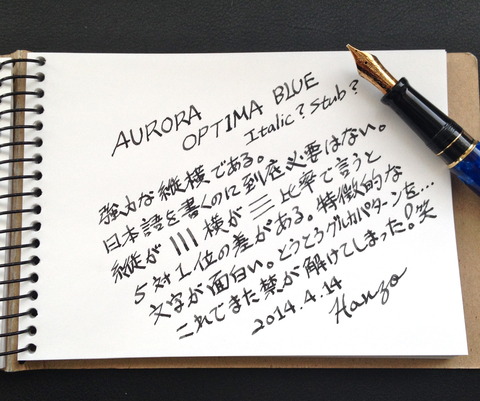 AURORA
OPTIMA BLUE
Italic? Stub?
強力な縦横である。
日本語を書くのに到底必要はない。
縦が ||| 横が 三 比率で言うと
5対1位の差がある。特徴的な
文字が面白い。とうとうグルカパターンを…
これでまた禁が解けてしまった!笑
2014.4.14
Hanzo